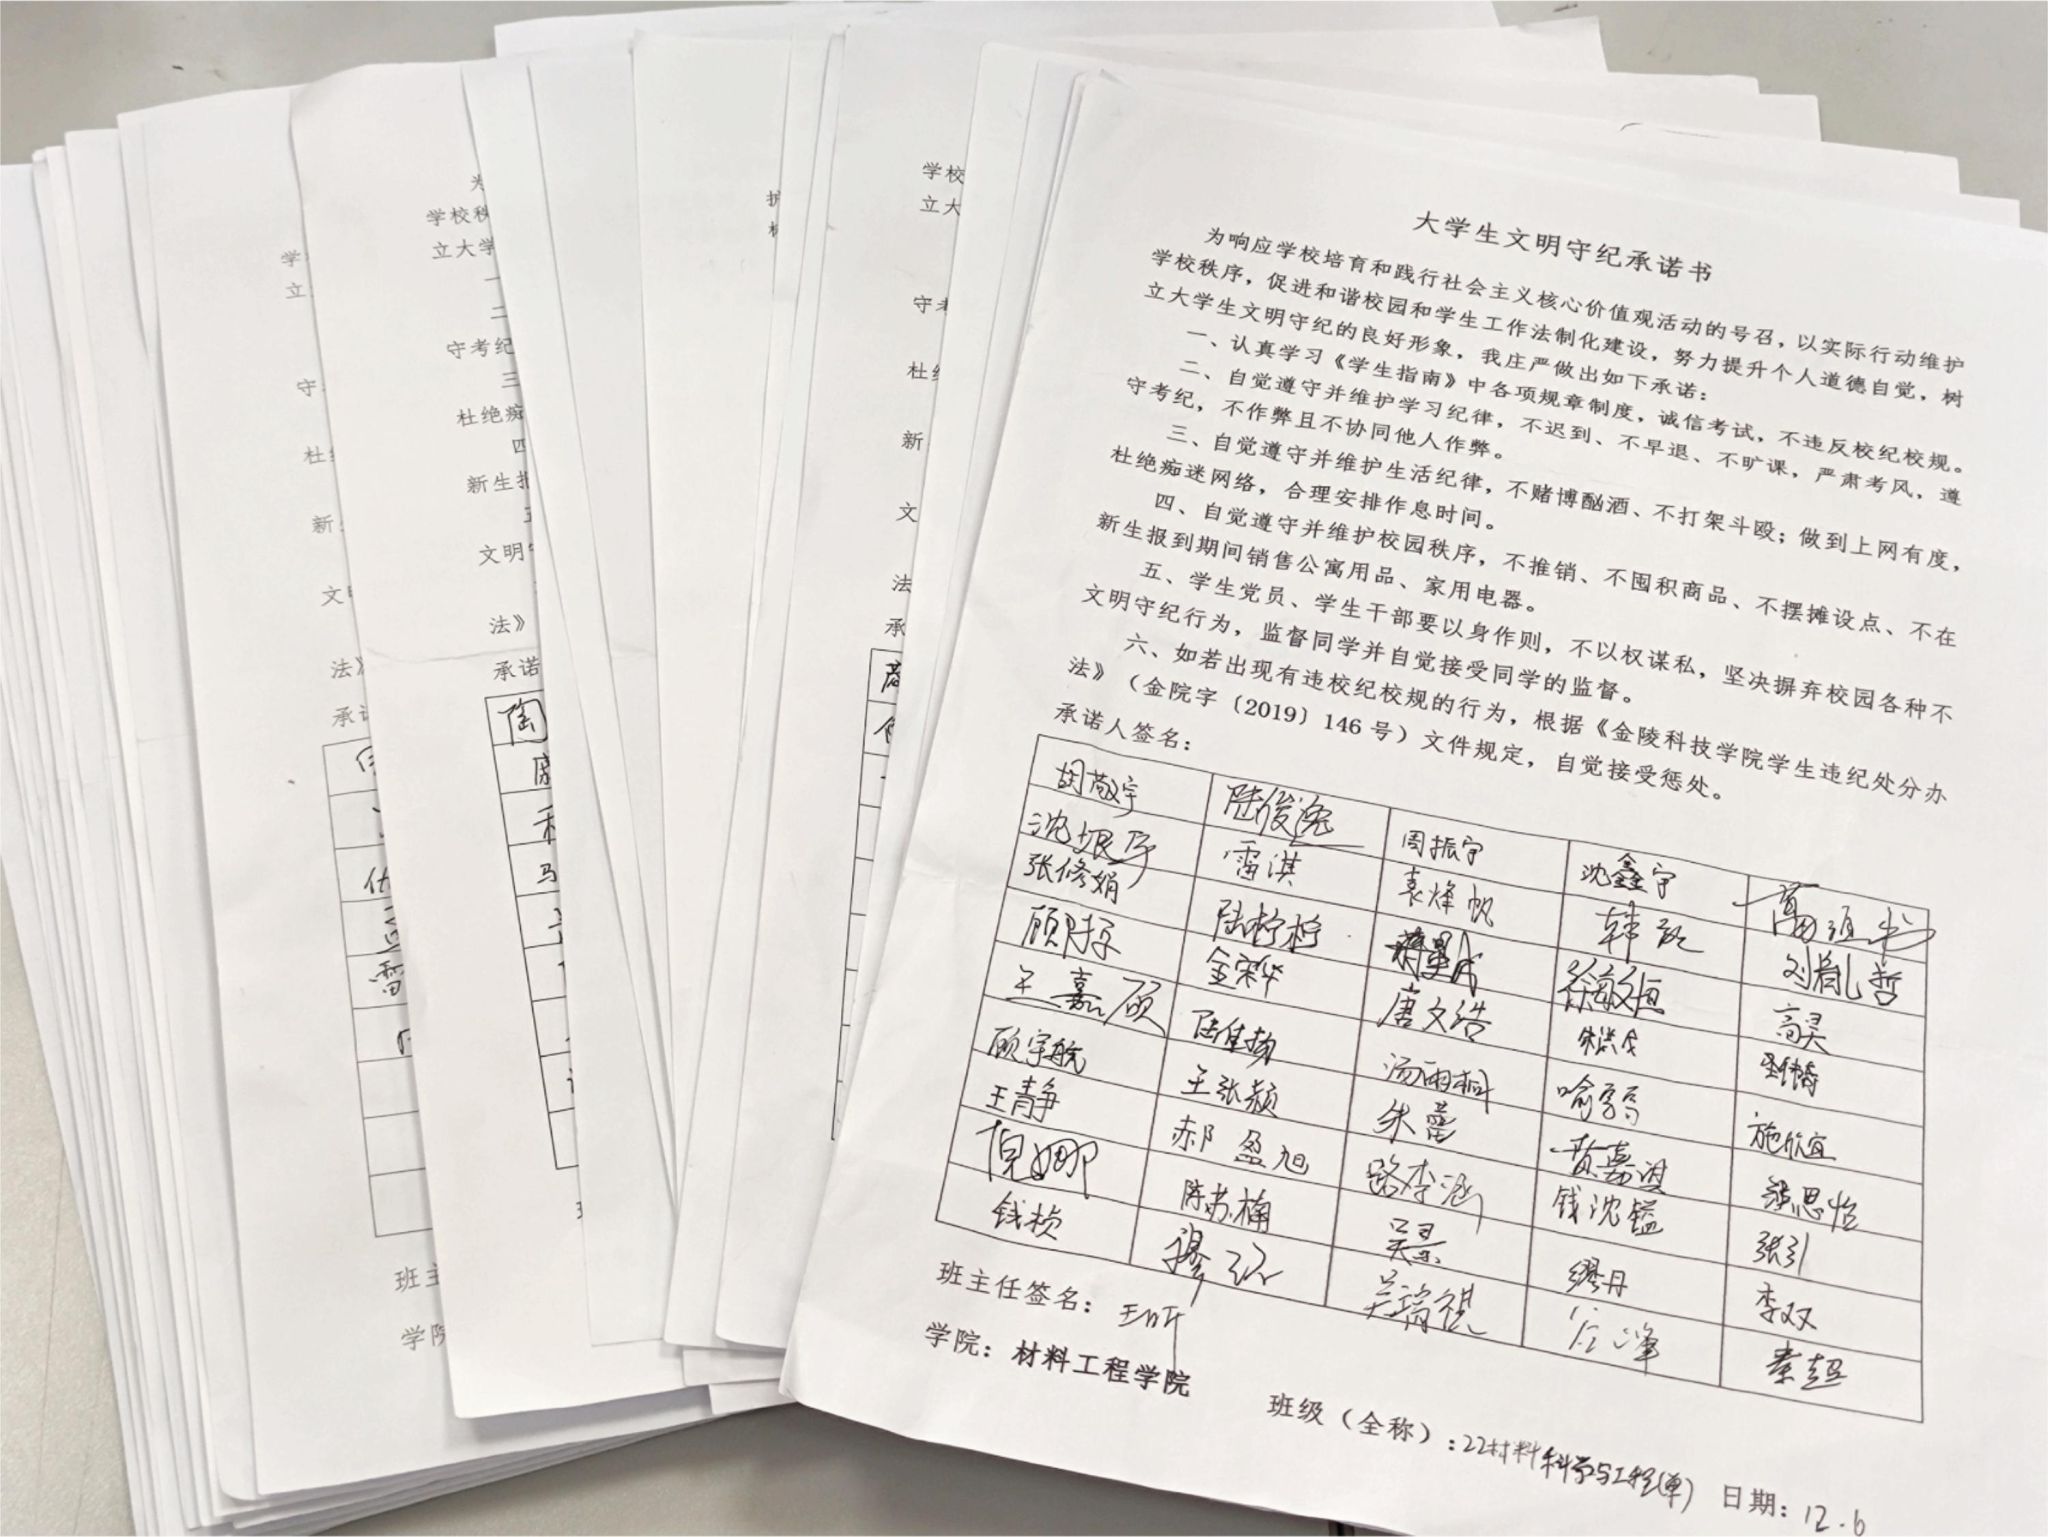 大学生文明守纪承诺书
为响应学校培育和践行社会主义核心价值观活动的号召，以实际行动维护
学校秩序，促进和谐校园和学生工作法制化建设，努力提升个人道德自觉，树
立大学生文明守纪的良好形象，我庄严做出如下承诺：
一、认真学习《学生指南》中各项规章制度，诚信考试，不违反校纪校规。
二、自觉遵守并维护学习纪律，不迟到、不早退、不旷课，严肃考风，遵
守考纪，不作弊且不协同他人作弊。
三、自觉遵守并维护生活纪律，不赌博酗酒、不打架斗殴；做到上网有度，
杜绝痴迷网络，合理安排作息时间。
四、自觉遵守并维护校园秩序，不推销、不囤积商品、不摆摊设点、不在
新生报到期间销售公寓用品、家用电器。
五、学生党员、学生干部要以身作则，不以权谋私，坚决摒弃校园各种不
文明守纪行为，监督同学并自觉接受同学的监督。
六、如若出现有违校纪校规的行为，根据《金陵科技学院学生违纪处分办
法》（金院字〔2019〕146号）文件规定，自觉接受惩处。
承诺人签名：
胡敬宇 陆俊逸 周振宇 沈鑫宇
雷淇 袁烽帆 韩 刘胤哲
张修娟 陆柠柠 徐敏恒 高昊
顾 金宋华 唐文浩 朱洪成
王嘉硕 陆佳扬 汤雨桐 喻 施欣宜
顾宇航 王张颖 朱蕾 黄嘉淇 思怡
王静 郝盈旭 路李涵 钱沈镒 张引
倪娜 陈苏楠 吴景 缪丹 李双
钱桢 缪 吴瑞祺 秦超
班主任签名：王昕
学院：材料工程学院
班级（全称）：22材料科学与工程(单) 日期：12.6
学校
立大
守考
杜绝
新
文
法
承
为
学校秩
立大学
一
二
守考纪
三
杜绝痴
四
新生报
五
文明守
法》
承诺
陶
马
学
立
守
杜绝
新
文明
法》
承诺
雷
班主
学院